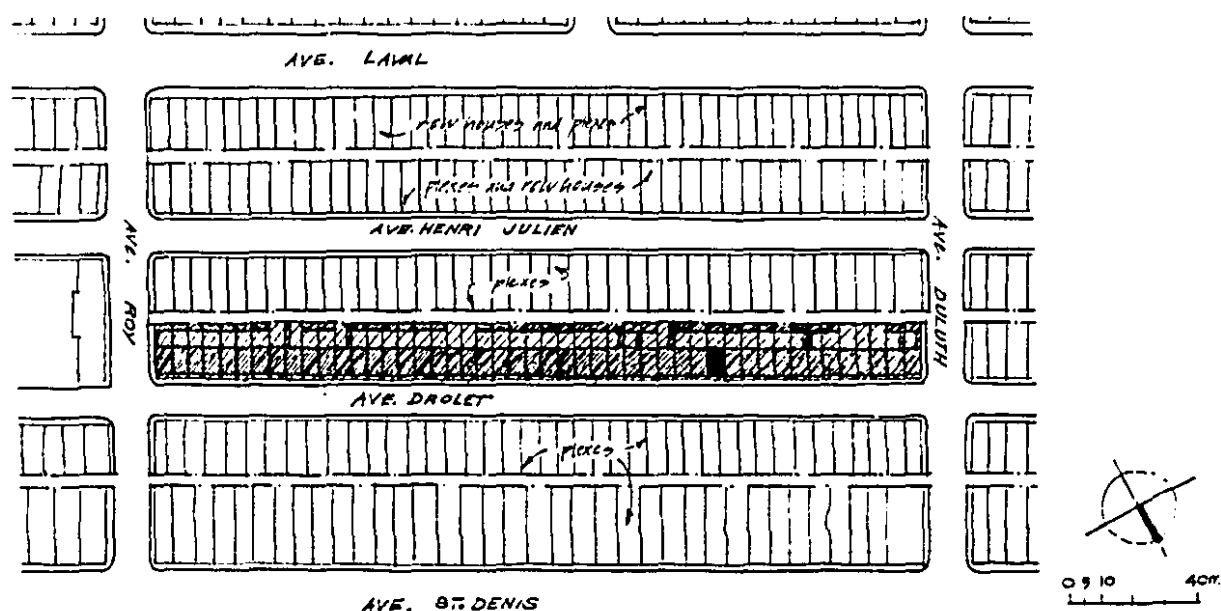 AVE. LAVAL
row houses and plexes
plexes and row houses
AVE. HENRI JULIEN
AVE. ROY
AVE. DULUTH
plexes
AVE. DROLET
plexes
AVE. ST. DENIS
0 5 10 40m.